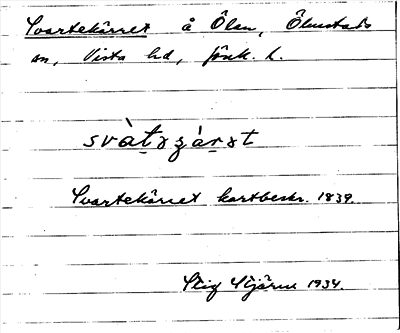 Svartekärret å Ölen, Ölmstads
sn, Vista hd, Jönk. l.
svàt̲ɤʒáṟɤt
Svartekärret kartbeskr. 1839.
Stig Stjärne 1934.